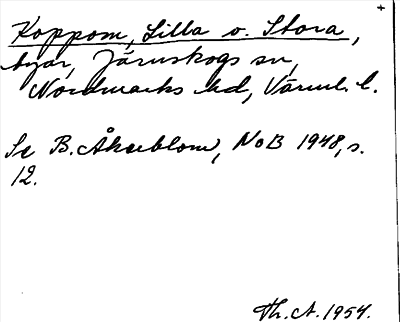 +
Koppom, Lilla o. Stora,
byar, Järnskogs sn,
Nordmarks hd, Värml. l.
Se B. Åkerblom, NoB 1948, s.
12.
Th. A. 1954.